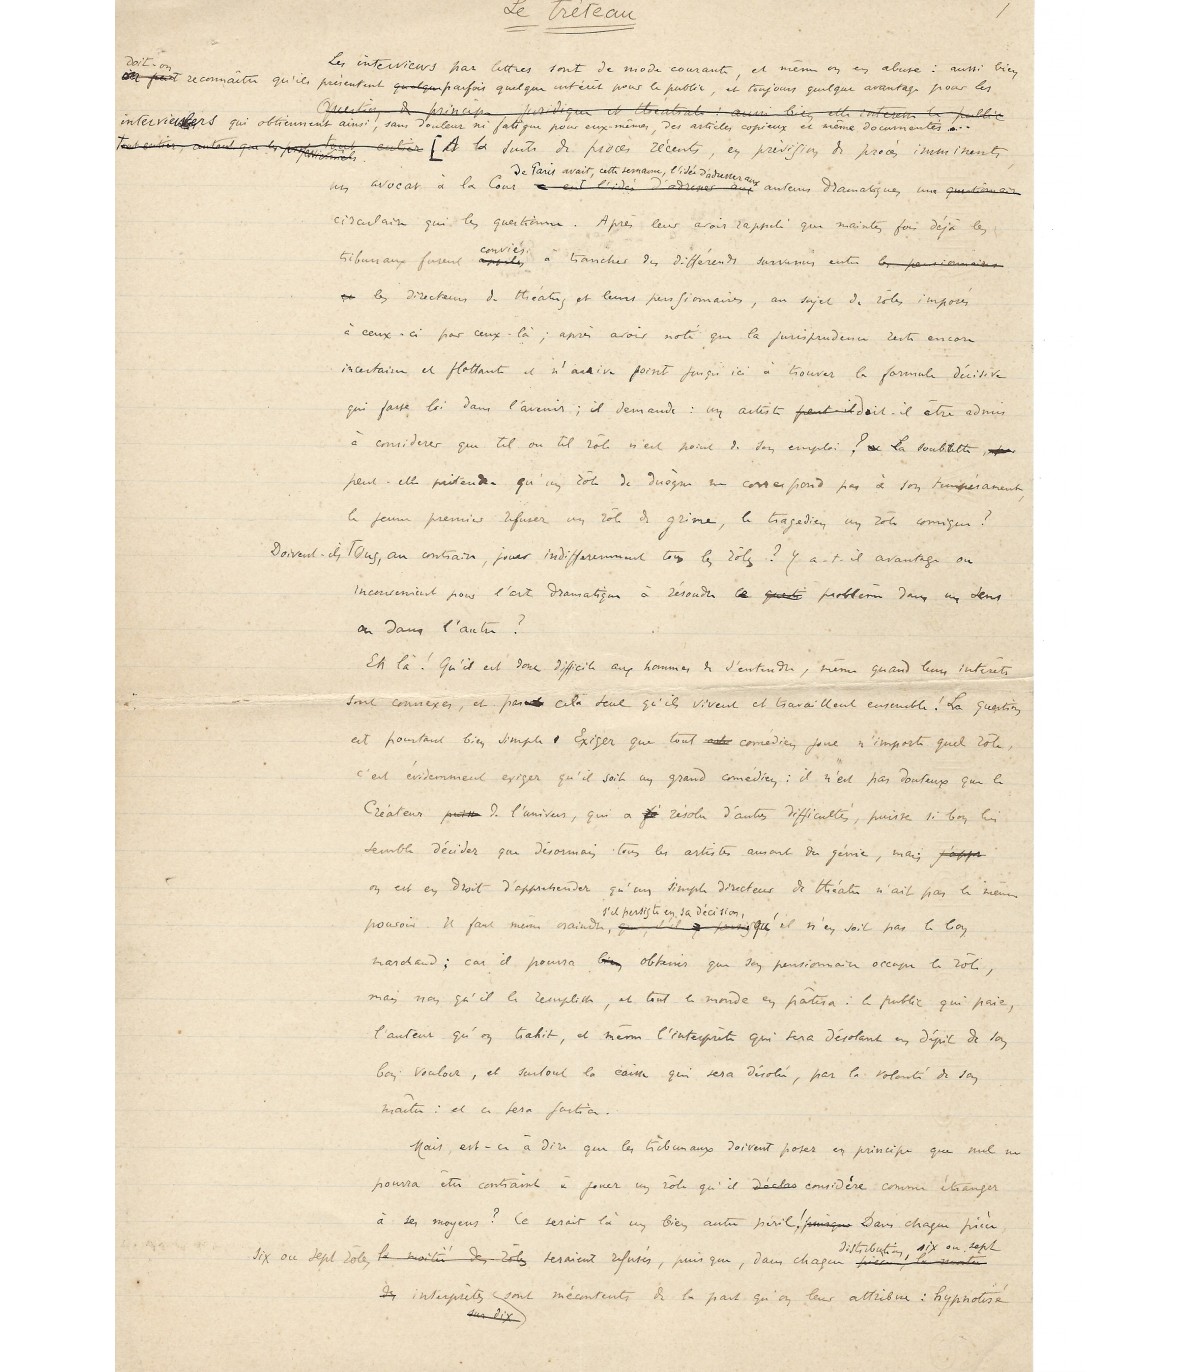 Le Tréteau
1
Les interviews par lettres sont de mode courante, et même on en abuse : aussi bien
doit-on
reconnaître qu'ils présentent quelque parfois quelque intérêt pour le public, et toujours quelque avantage pour les
Question de principe, juridique et théâtrale : aussi bien elle intéresse le public
interviewers qui obtiennent ainsi, sans douleur ni fatigue pour eux-mêmes, des articles copieux et même documentés...
tout entier, autant que les tout entier [A la suite de procès récents, en prévision de procès imminents,
de Paris avait, cette semaine, l'idée d'adresser aux
un avocat à la Cour a eut l'idée d'adresser aux auteurs dramatiques une questionnaire
circulaire qui les questionne. Après leur avoir rappelé que maintes fois déjà les
conviés
tribunaux furent appelés à trancher des différends survenus entre les pensionnaires
et les directeurs de théâtres et leurs pensionnaires, au sujet de rôles imposés
à ceux-ci par ceux-là ; après avoir noté que la jurisprudence reste encore
incertaine et flottante et n'arrive point jusqu'ici à trouver la formule décisive
qui fasse loi dans l'avenir ; il demande : un artiste peut-il doit-il être admis
à considérer que tel ou tel rôle n'est point de son emploi ? La soubrette,
peut-elle prétendre qu'un rôle de duègne ne correspond pas à son tempérament,
le jeune premier refuser un rôle de grime, le tragédien un rôle comique ?
Doivent-ils Tous, au contraire, jouer indifféremment tous les rôles ? Y a-t-il avantage ou
inconvénient pour l'art dramatique à résoudre le questi problème dans un sens
ou dans l'autre ?
Eh là ! Qu'il est donc difficile aux hommes de s'entendre, même quand leurs intérêts
sont connexes, et par cela seul qu'ils vivent et travaillent ensemble ! La question
est pourtant bien simple. Exiger que tout comédien joue n'importe quel rôle,
c'est évidemment exiger qu'il soit un grand comédien : il n'est pas douteux que le
Créateur puisse de l'univers, qui a résolu d'autres difficultés, puisse si bon lui
semble décider que désormais tous les artistes auront du génie, mais
on est en droit d'appréhender qu'un simple directeur de théâtre n'ait pas le même
s'il persiste en sa décision,
pouvoir. Il faut même craindre, que, s'il persiste qu'il n'en soit pas le bon
marchand ; car il pourra bien obtenir que son pensionnaire occupe le rôle,
mais non qu'il le remplisse, et tout le monde en pâtira : le public qui paie,
l'auteur qu'on trahit, et même l'interprète qui sera désolant en dépit de son
bon vouloir, et surtout la caisse qui sera désolée, par la volonté de son
maître : et ce sera justice.
Mais, est-ce à dire que les tribunaux doivent poser en principe que nul ne
pourra être contraint à jouer un rôle qu'il déclare considère comme étranger
à ses moyens ? Ce serait là un bien autre péril ! puisque Dans chaque pièce,
distribution, six ou sept
six ou sept rôles la moitié des rôles seraient refusés, puisque, dans chaque pièce, la moitié
des interprètes sont mécontents de la part qu'on leur attribue : hypnotisé
sur dix